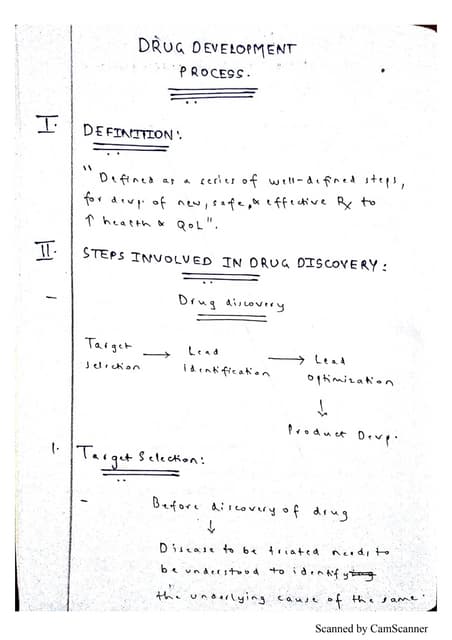 DRUG DEVELOPMENT
PROCESS.
I. DEFINITION:
"Defined as a series of well-defined steps,
for devp. of new, safe, & effective Rx to
↑ health & QoL".
II. STEPS INVOLVED IN DRUG DISCOVERY:
- Drug discovery
Target selection → Lead identification → Lead optimization
↓
Product Devp.
1. Target Selection:
- Before discovery of drug
↓
Disease to be treated needs to
be understood to identify
the underlying cause of the same.
Scanned by CamScanner